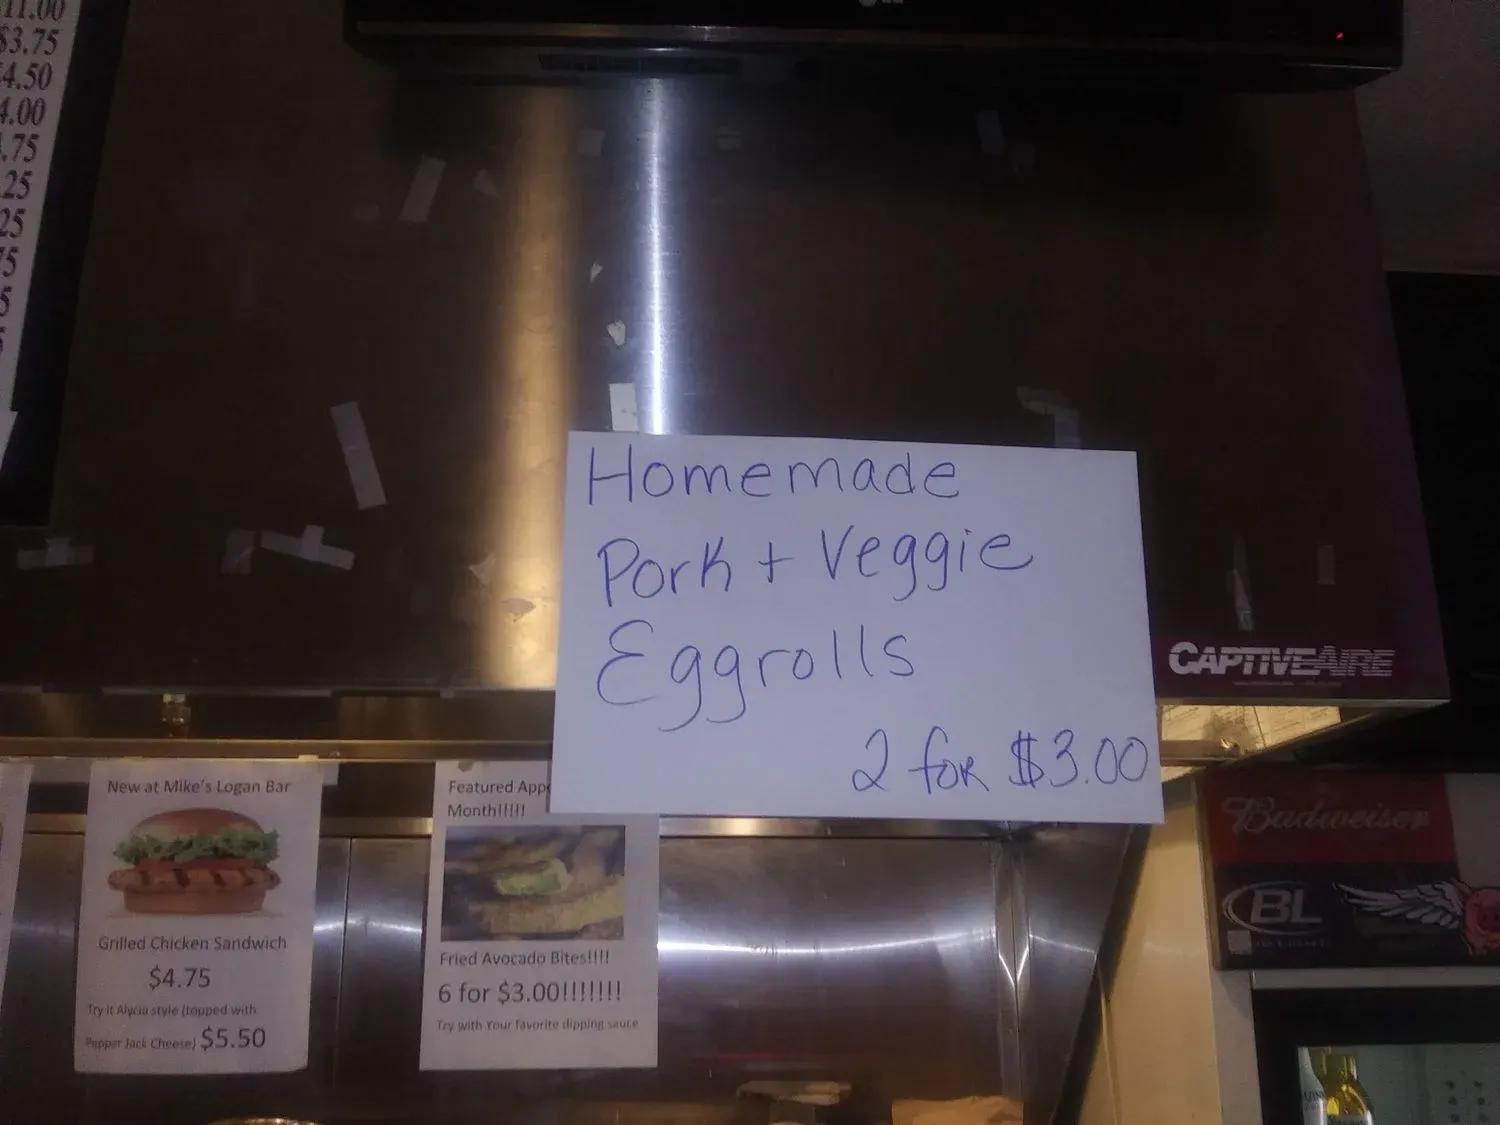 $3.75
4.50
4.00
.75
.25
25
Homemade
Pork + Veggie
Eggrolls
2 for $3.00
CAPTIVEAIRE
New at Mike's Logan Bar
Grilled Chicken Sandwich
$4.75
Try it Alycia style (topped with
Pepper Jack Cheese) $5.50
Featured
Month!!!!!
Fried Avocado Bites!!!!
6 for $3.00!!!!!!!
Try with Your favorite dipping sauce
Budweiser
BL